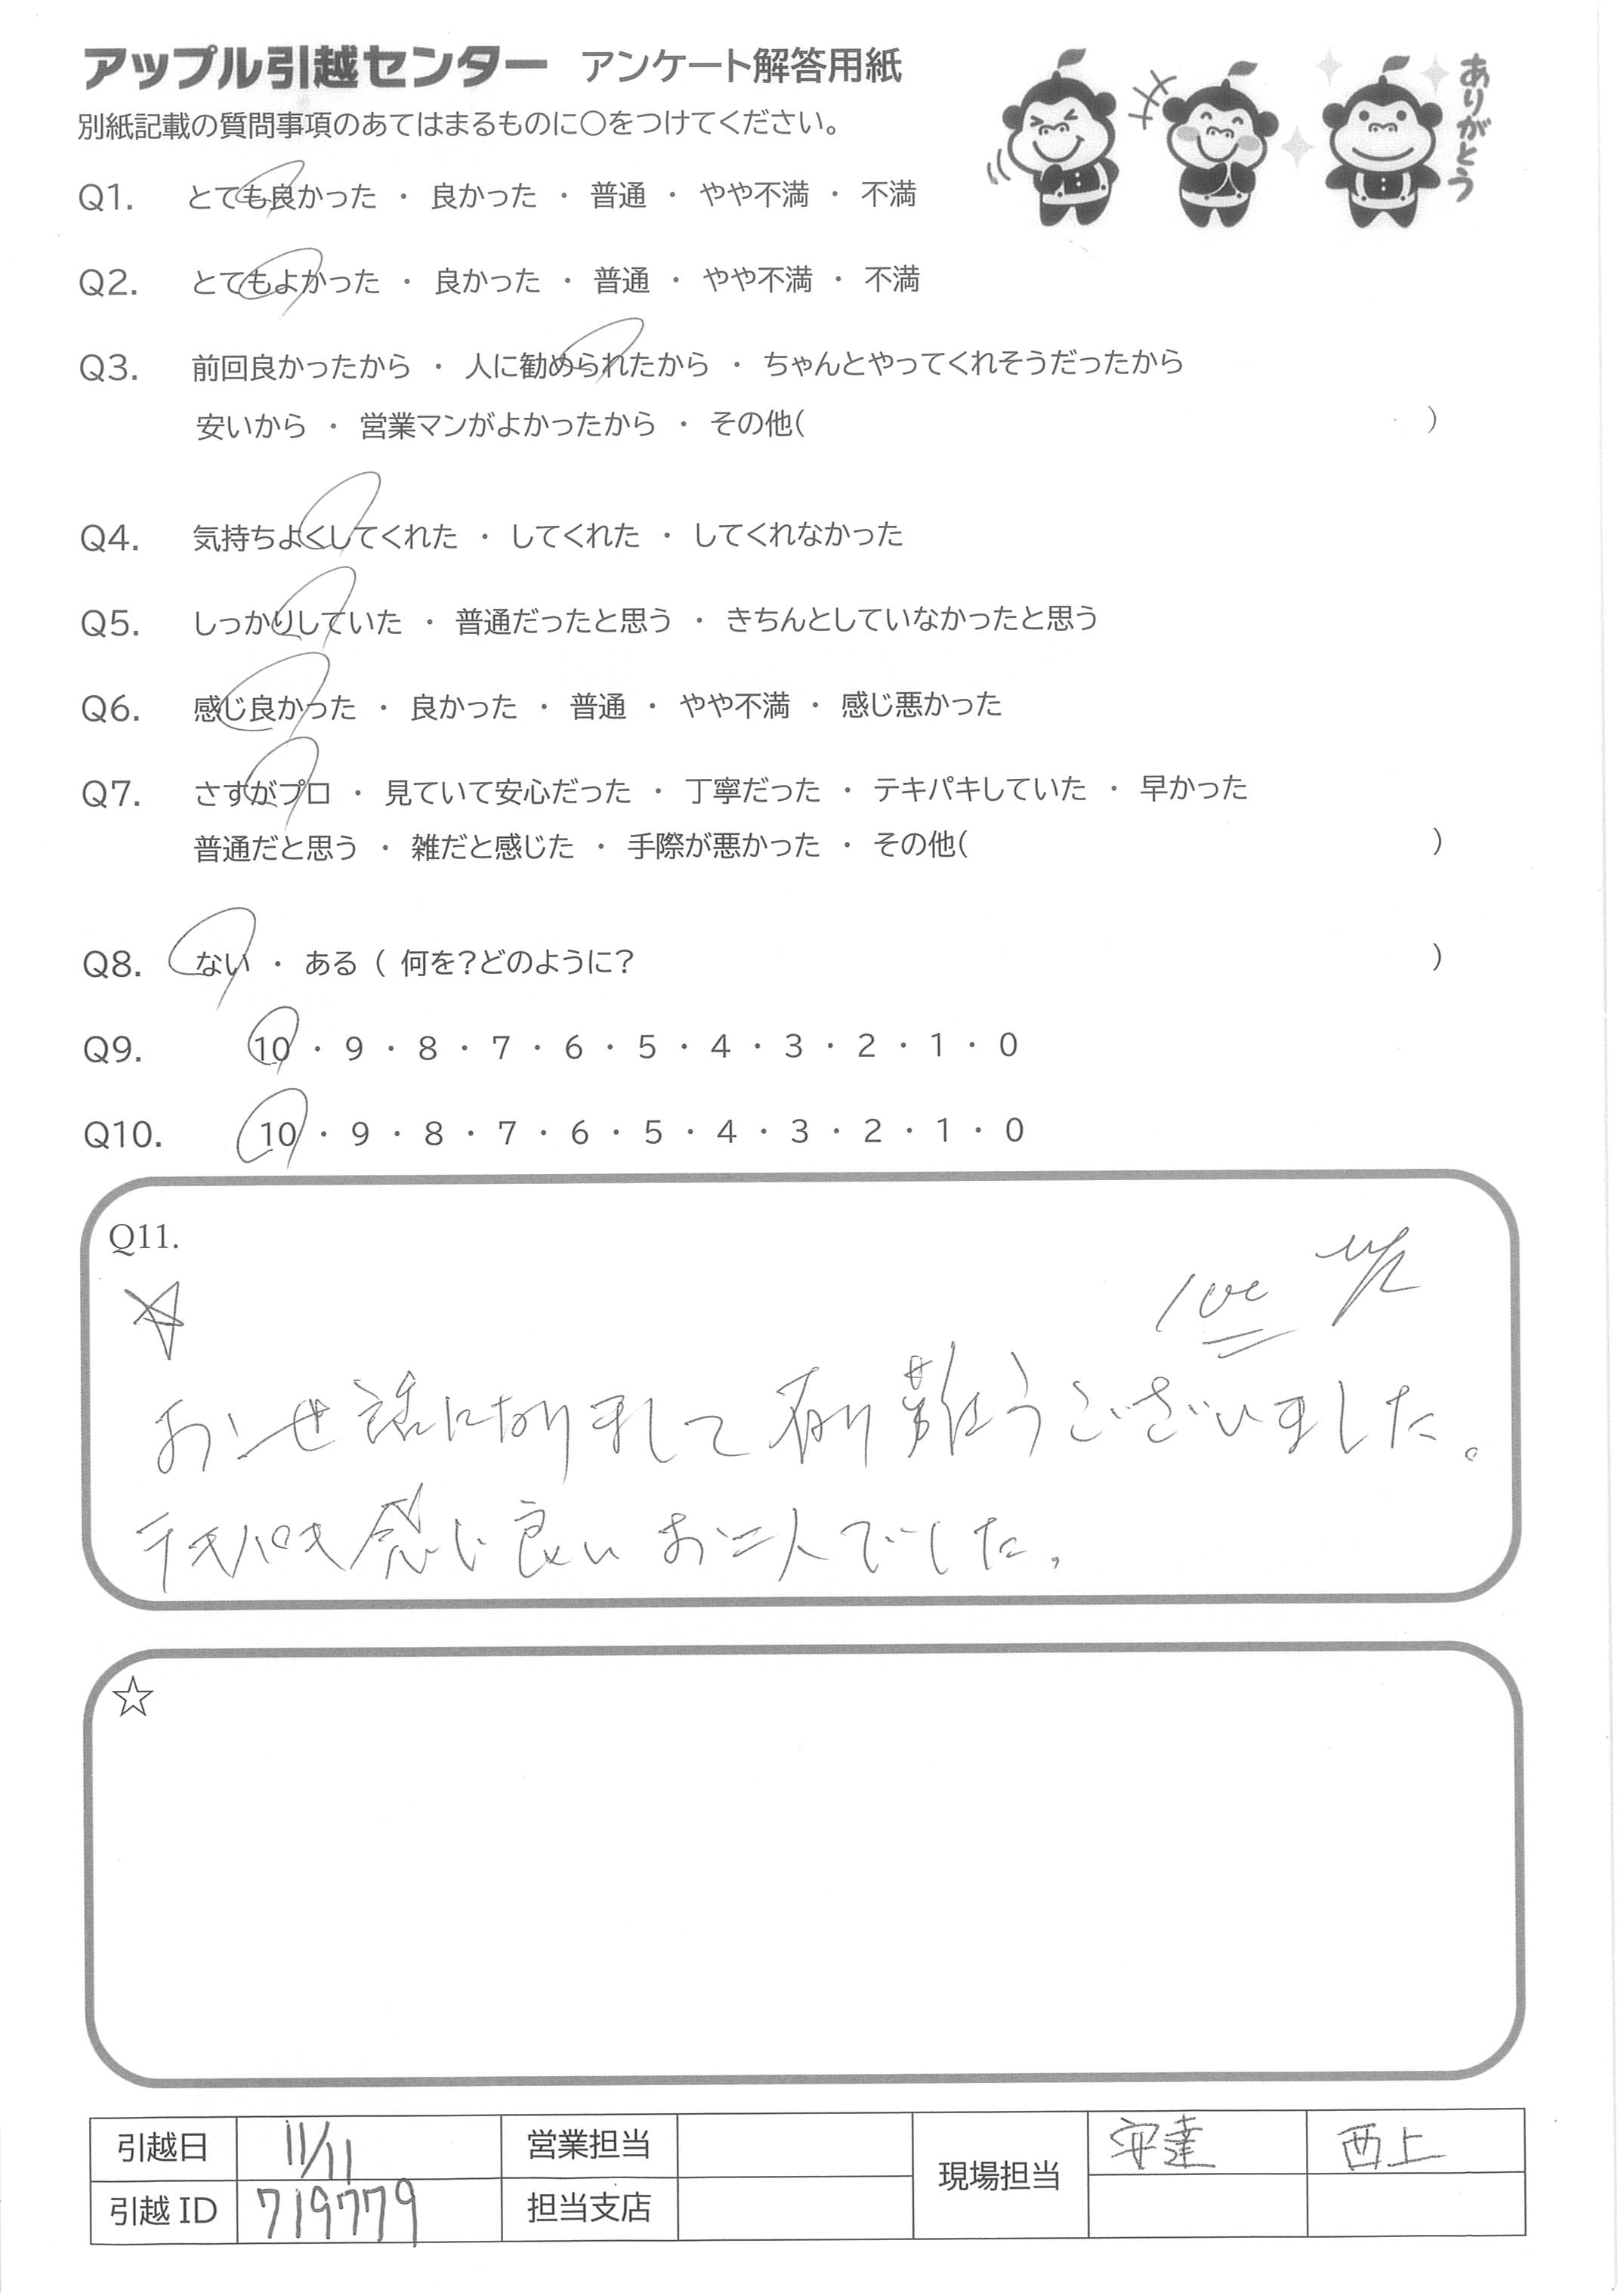 アップル引越センター アンケート解答用紙
ありがとう
別紙記載の質問事項のあてはまるものに○をつけてください。
Q1. とても良かった ・ 良かった ・ 普通 ・ やや不満 ・ 不満
Q2. とてもよかった ・ 良かった ・ 普通 ・ やや不満 ・ 不満
Q3. 前回良かったから ・ 人に勧められたから ・ ちゃんとやってくれそうだったから
安いから ・ 営業マンがよかったから ・ その他( )
Q4. 気持ちよくしてくれた ・ してくれた ・ してくれなかった
Q5. しっかりしていた ・ 普通だったと思う ・ きちんとしていなかったと思う
Q6. 感じ良かった ・ 良かった ・ 普通 ・ やや不満 ・ 感じ悪かった
Q7. さすがプロ ・ 見ていて安心だった ・ 丁寧だった ・ テキパキしていた ・ 早かった
普通だと思う ・ 雑だと感じた ・ 手際が悪かった ・ その他( )
Q8. ない ・ ある ( 何を?どのように? )
Q9. 10 ・ 9 ・ 8 ・ 7 ・ 6 ・ 5 ・ 4 ・ 3 ・ 2 ・ 1 ・ 0
Q10. 10 ・ 9 ・ 8 ・ 7 ・ 6 ・ 5 ・ 4 ・ 3 ・ 2 ・ 1 ・ 0
Q11.
☆
おせ話になりまして有り難うございました。
テキパキ感じ良いお二人でした。
☆
引越日 11/11 営業担当 現場担当 安達 西上
引越ID 719779 担当支店